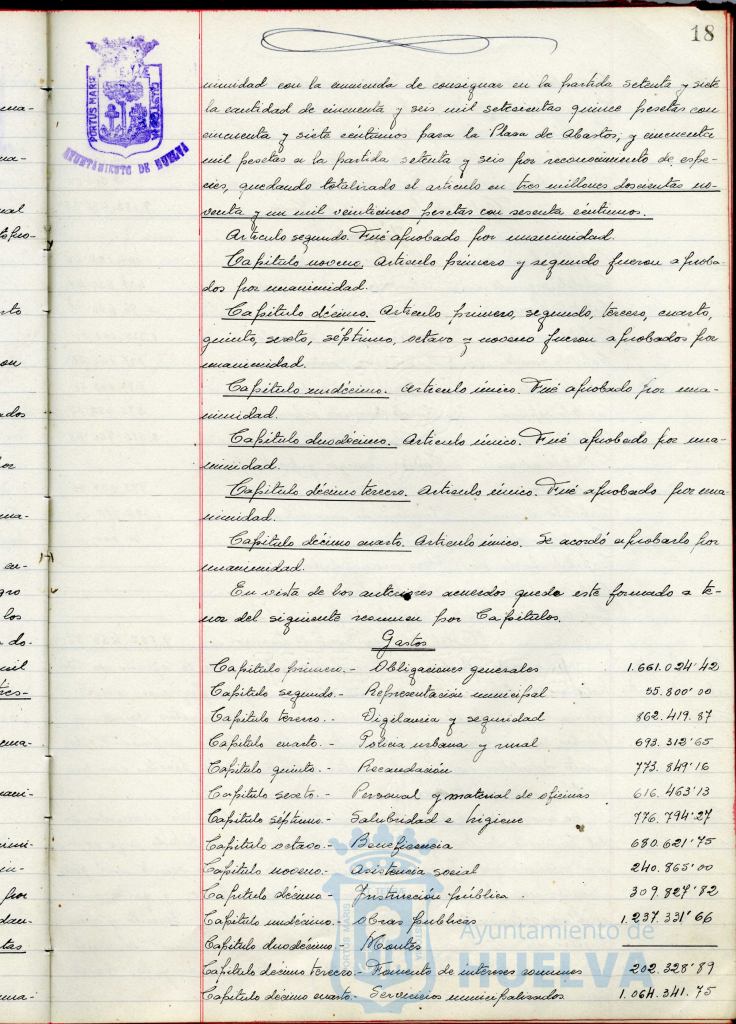 18
PORTUS MARIS
AYUNTAMIENTO DE HUELVA
nimidad con la enmienda de consignar en la partida setenta y siete
la cantidad de cincuenta y seis mil setecientas quince pesetas con
cincuenta y siete céntimos para la Plaza de Abastos, y cincuenta
mil pesetas a la partida setenta y seis por reconocimiento de espe-
cies, quedando totalizado el artículo en tres millones doscientas no-
venta y un mil veinticinco pesetas con sesenta céntimos.
Artículo segundo. Fué aprobado por unanimidad.
Capítulo noveno. Artículo primero y segundo fueron aproba-
dos por unanimidad.
Capítulo décimo. Artículo primero, segundo, tercero, cuarto,
quinto, sexto, séptimo, octavo y noveno fueron aprobados por
unanimidad.
Capítulo undécimo. Artículo único. Fué aprobado por una-
nimidad.
Capítulo duodécimo. Artículo único. Fué aprobado por una-
nimidad.
Capítulo décimo tercero. Artículo único. Fué aprobado por una-
nimidad.
Capítulo décimo cuarto. Artículo único. Se acordó aprobarlo por
unanimidad.
En vista de los anteriores acuerdos queda este formado a te-
nor del siguiente resumen por Capítulos.
Gastos
Capítulo primero.- Obligaciones generales 1.661.024'42
Capítulo segundo.- Representación municipal 55.800'00
Capítulo tercero.- Vigilancia y seguridad 862.419.87
Capítulo cuarto.- Policía urbana y rural 693.312'65
Capítulo quinto.- Recaudación 773.849'16
Capítulo sexto.- Personal y material de oficinas 616.463'13
Capítulo séptimo.- Salubridad e higiene 776.794'27
Capítulo octavo.- Beneficencia 680.621'75
Capítulo noveno.- Asistencia social 240.865'00
Capítulo décimo.- Instrucción pública 309.827'82
Capítulo undécimo.- Obras públicas 1.237.331'66
Capítulo duodécimo Montes
Capítulo décimo tercero.- Fomento de intereses comunes 202.328'89
Capítulo décimo cuarto.- Servicios municipalizados 1.064.341.75
Ayuntamiento de
HUELVA